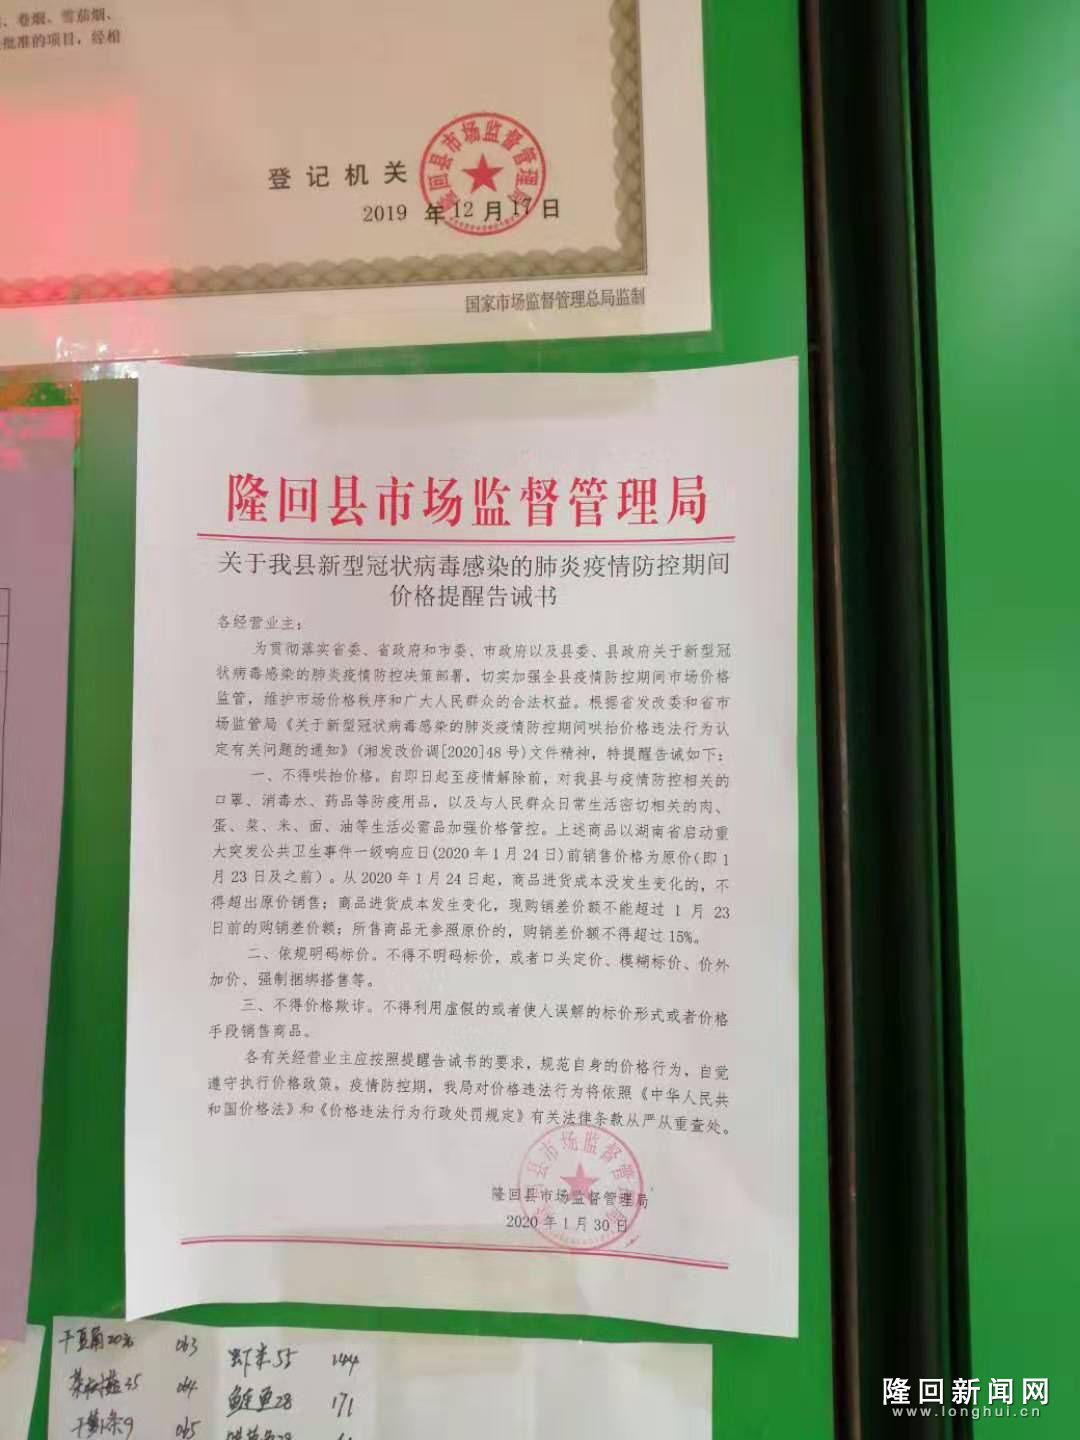 、卷烟、雪茄烟、
批准的项目，经相
登记机关
隆回县市场监督管理局
2019 年 12 月 17 日
国家市场监督管理总局监制
隆回县市场监督管理局
关于我县新型冠状病毒感染的肺炎疫情防控期间
价格提醒告诫书
各经营业主：
为贯彻落实省委、省政府和市委、市政府以及县委、县政府关于新型冠
状病毒感染的肺炎疫情防控决策部署，切实加强全县疫情防控期间市场价格
监管，维护市场价格秩序和广大人民群众的合法权益。根据省发改委和省市
场监管局《关于新型冠状病毒感染的肺炎疫情防控期间哄抬价格违法行为认
定有关问题的通知》(湘发改价调[2020]48 号)文件精神，特提醒告诫如下：
一、不得哄抬价格。自即日起至疫情解除前，对我县与疫情防控相关的
口罩、消毒水、药品等防疫用品，以及与人民群众日常生活密切相关的肉、
蛋、菜、米、面、油等生活必需品加强价格管控。上述商品以湖南省启动重
大突发公共卫生事件一级响应日(2020 年 1 月 24 日)前销售价格为原价(即 1
月 23 日及之前)。从 2020 年 1 月 24 日起，商品进货成本没发生变化的，不
得超出原价销售；商品进货成本发生变化，现购销差价额不能超过 1 月 23
日前的购销差价额；所售商品无参照原价的，购销差价额不得超过 15%。
二、依规明码标价。不得不明码标价，或者口头定价、模糊标价、价外
加价、强制捆绑搭售等。
三、不得价格欺诈。不得利用虚假的或者使人误解的标价形式或者价格
手段销售商品。
各有关经营业主应按照提醒告诫书的要求，规范自身的价格行为，自觉
遵守执行价格政策。疫情防控期，我局对价格违法行为将依照《中华人民共
和国价格法》和《价格违法行为行政处罚规定》有关法律条款从严从重查处。
隆回县市场监督管理局
隆回县市场监督管理局
2020 年 1 月 30 日
干豆角20元 063 虾米55 144
茶树菇35 064 鱿鱼28 171
干萝卜条9 065
隆回新闻网
www.longhui.cn